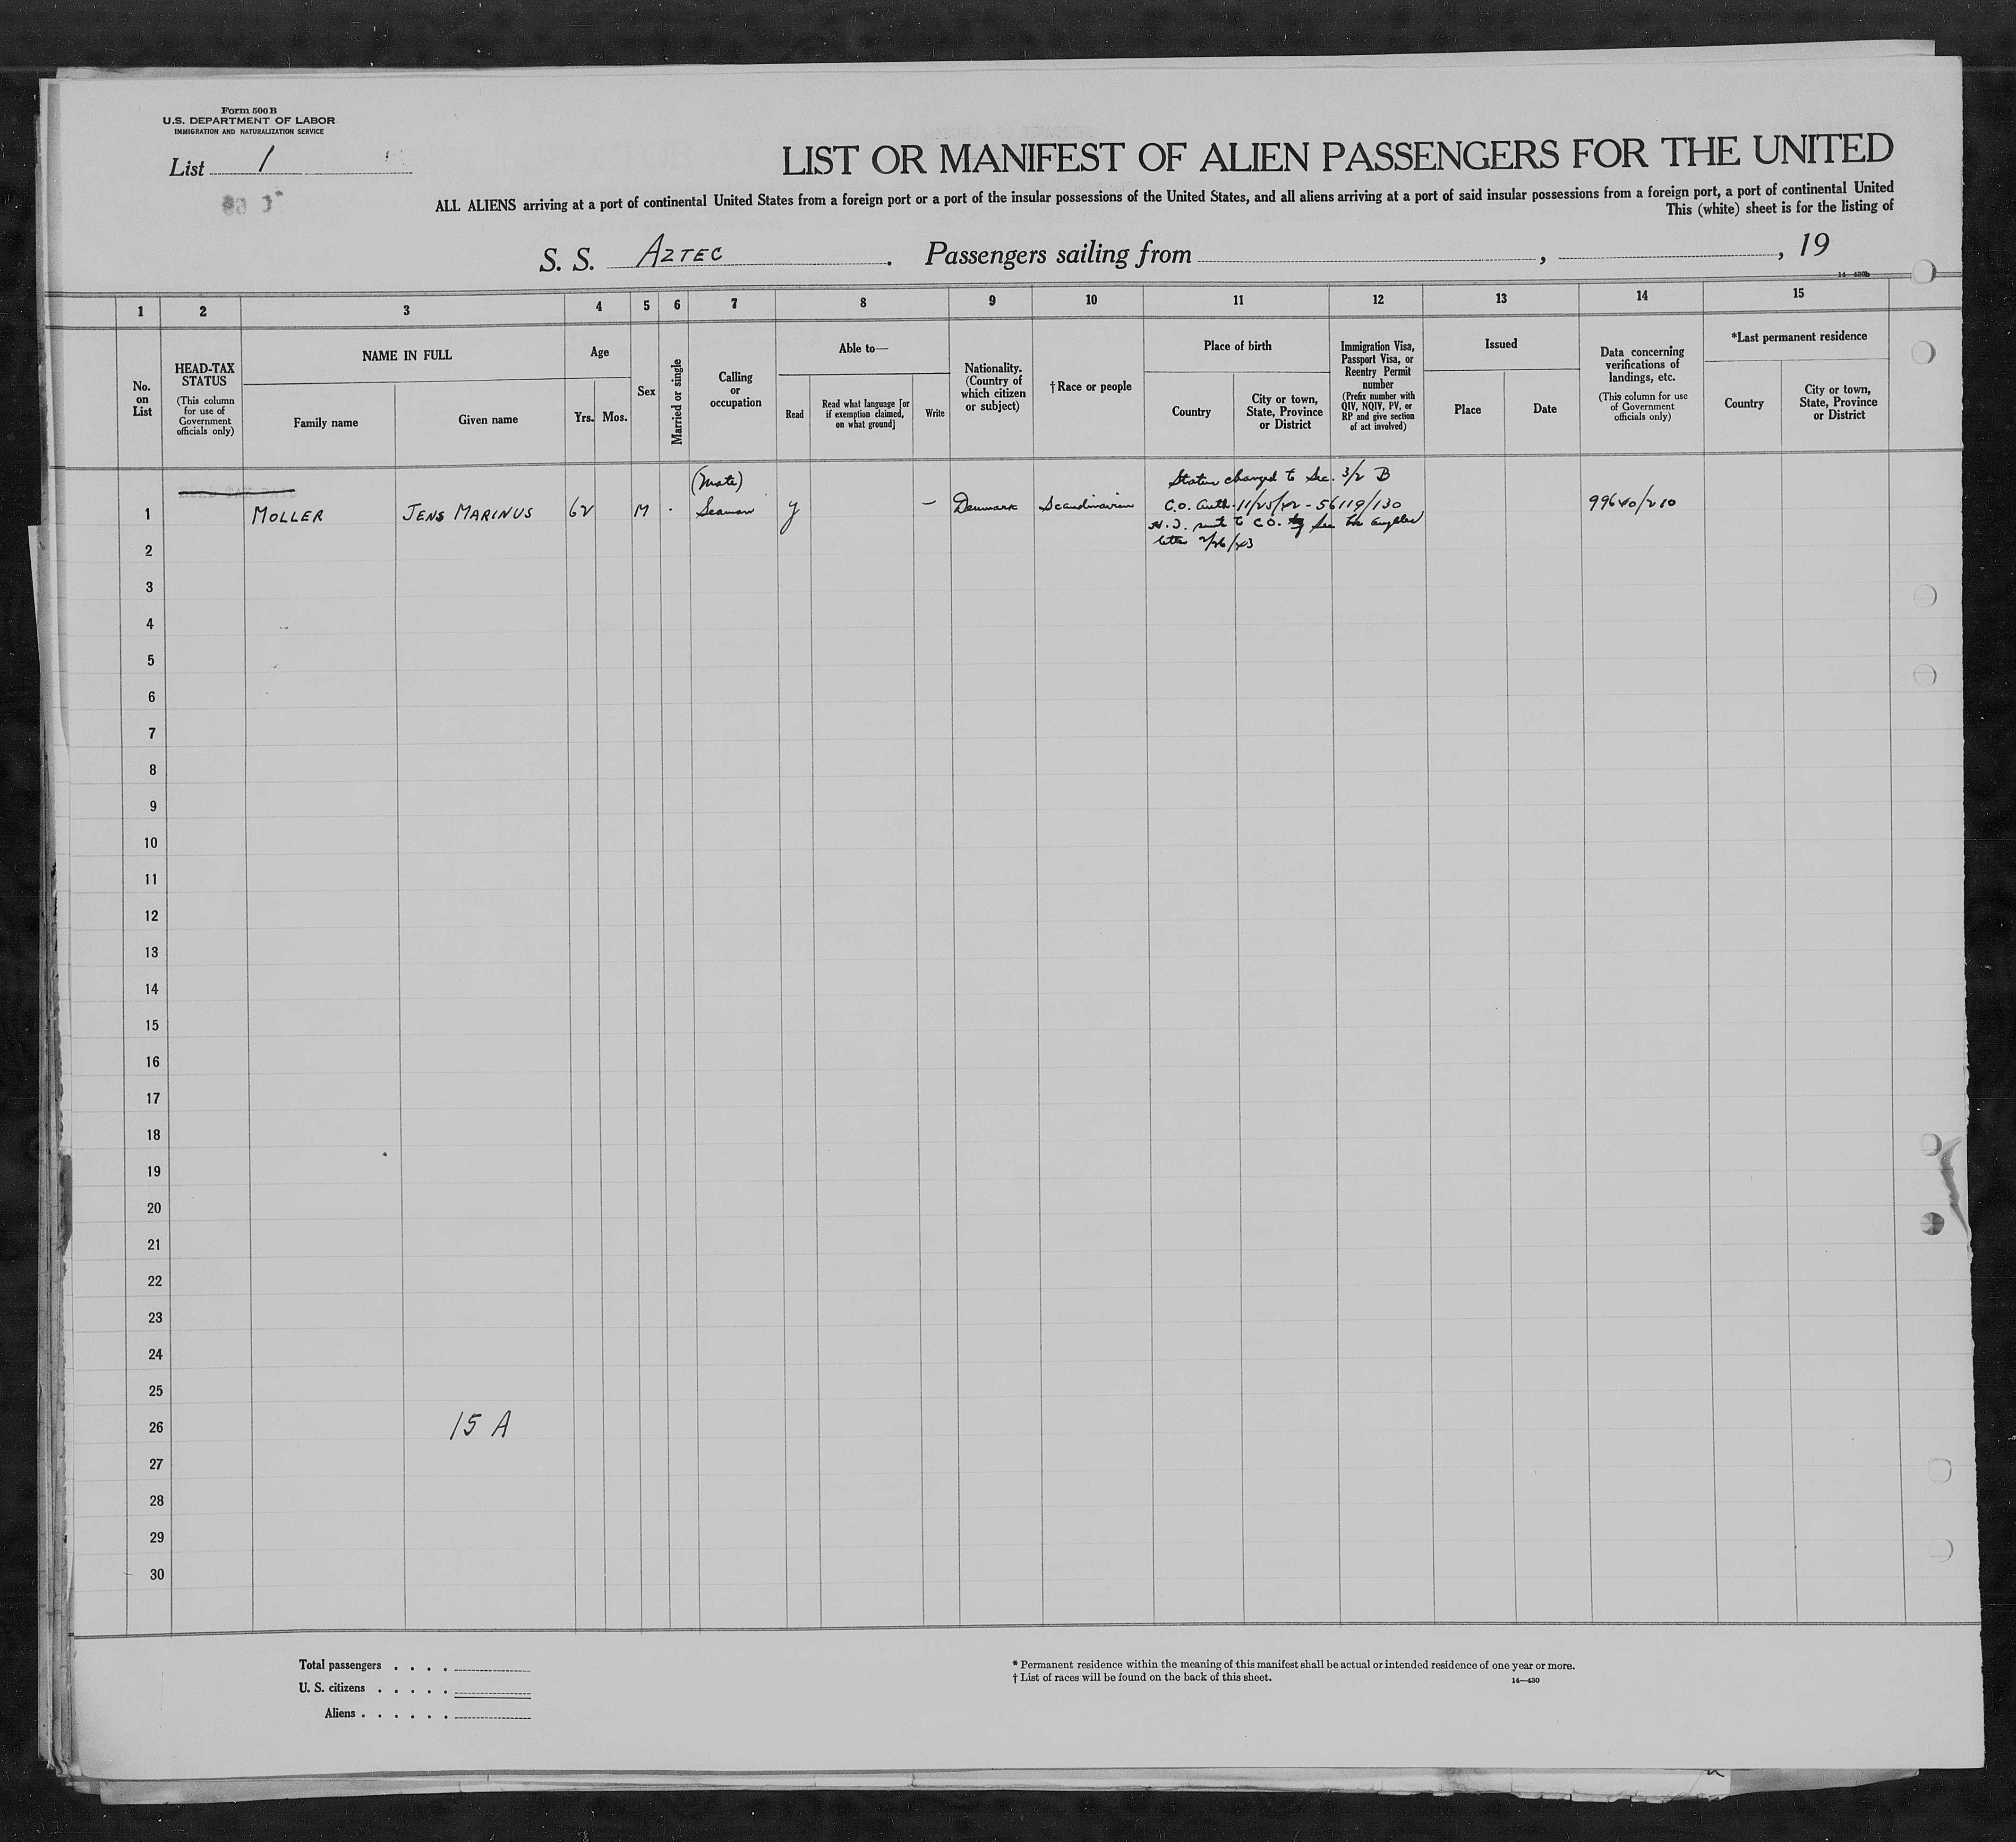 Form 500 B
U.S. DEPARTMENT OF LABOR
IMMIGRATION AND NATURALIZATION SERVICE
List 1
LIST OR MANIFEST OF ALIEN PASSENGERS FOR THE UNITED
ALL ALIENS arriving at a port of continental United States from a foreign port or a port of the insular possessions of the United States, and all aliens arriving at a port of said insular possessions from a foreign port, a port of continental United
This (white) sheet is for the listing of
S. S. AZTEC . Passengers sailing from , , 19
14—430b
1 2 3 4 5 6 7 8 9 10 11 12 13 14 15
No. on List
HEAD-TAX STATUS
(This column for use of Government officials only)
NAME IN FULL
Family name
Given name
Age
Yrs. Mos.
Sex
Married or single
Calling or occupation
Able to—
Read
Read what language [or if exemption claimed, on what ground]
Write
Nationality. (Country of which citizen or subject)
†Race or people
Place of birth
Country
City or town, State, Province or District
Immigration Visa, Passport Visa, or Reentry Permit number
(Prefix number with QIV, NQIV, PV, or RP and give section of act involved)
Issued
Place
Date
Data concerning verifications of landings, etc.
(This column for use of Government officials only)
*Last permanent residence
Country
City or town, State, Province or District
(Mate) Status changed to Sec. 3/2 B
1 MOLLER JENS MARINUS 62 M Seaman y — Denmark Scandinavian C.O. Auth. 11/25/42 - 56119/130 99640/210
sent to C.O. See Los Angeles
2 letter 2/26/43
3
4
5
6
7
8
9
10
11
12
13
14
15
16
17
18
19
20
21
22
23
24
25
26 15 A
27
28
29
30
Total passengers . . . .
U. S. citizens . . . . .
Aliens . . . . . .
* Permanent residence within the meaning of this manifest shall be actual or intended residence of one year or more.
† List of races will be found on the back of this sheet.
14—430